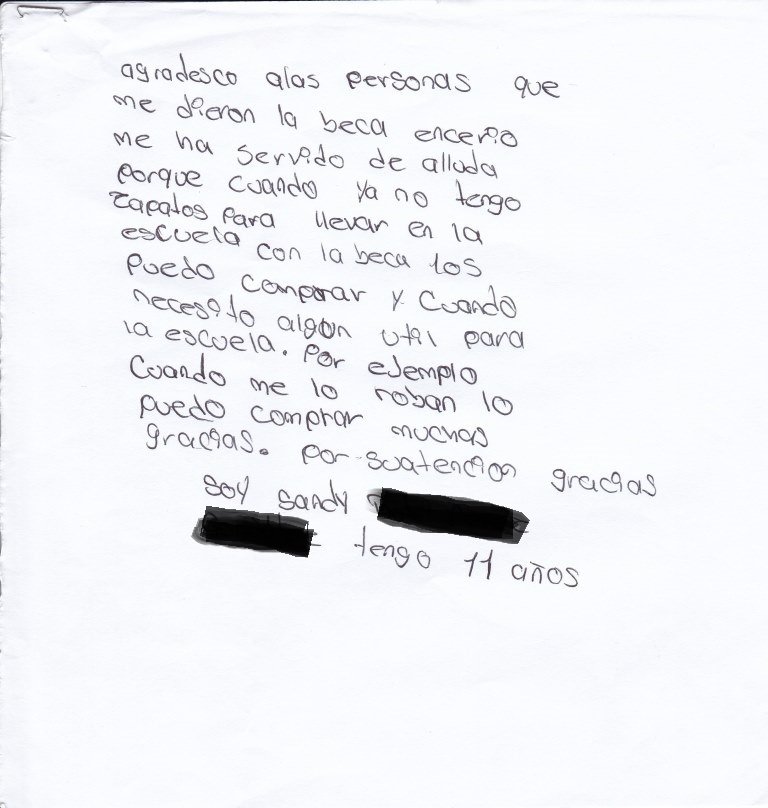 agradesco alas personas que
me dieron la beca encerio
me ha servido de alluda
porque cuando ya no tengo
zapatos para llevar en la
escuela con la beca los
puedo comprar y cuando
necesito algun util para
la escuela. por ejemplo
cuando me lo roban lo
puedo comprar muchas
gracias. por suatencion gracias
soy sandy
tengo 11 años